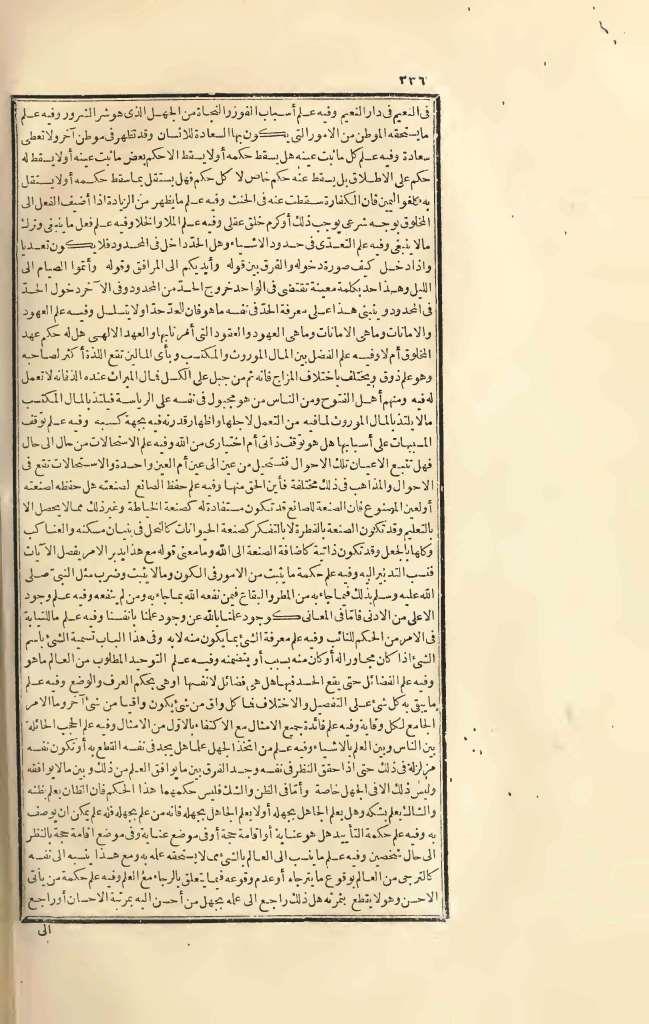 ٣٣٦
فى النعيم فى دار النعيم وفيه علم أسباب الفوز والنجاة من الجهل الذى هو شر الشرور وفيه علم
ما يستحقه الموطن من الامور التى يكون بها السعادة للانسان وقد تظهر فى موطن آخر ولا تعطى
سعادة وفيه علم كل ما ثبت عينه هل يسقط حكمه أولا يسقط الا حكم بعض ما ثبت عينه أولا يسقط له
حكم على الاطلاق بل يسقط عنه حكم خاص لا كل حكم فهل يستقل بما سقط حكمه أولا يستقل
به كلغو اليمين فان الكفارة سقطت عنه فى الحنث وفيه علم ما يظهر من الزيادة اذا أضيف الفعل الى
المخلوق بوجه شرعى يوجب ذلك أو كرم خلق عقلى وفيه علم الملا والخلا وفيه علم فعل ما ينبغى وترك
مالا ينبغى وفيه علم التعدّى فى حدود الاشياء وهل الحدّ داخل فى المحدود فلا يكون تعديا
واذا دخل كيف صورة دخوله والفرق بين قوله وأيديكم الى المرافق وقوله وأتموا الصيام الى
الليل وهذا حد بكلمة معينة تقتضى فى الواحد خروج الحدّ من المحدود وفى الآخر دخول الحدّ
فى المحدود وينبنى هذا على معرفة الحدّ فى نفسه ما هو فان للعدّ حدّا ولا يتسلسل وفيه علم العهود
والامانات وما هى الامانات وما هى العهود والعقود التى أمرنا بها والعهد الالهى هل له حكم عهد
المخلوق أم لا وفيه علم الفضل بين المال الموروث والمكتسب وبأى المالين تقع اللذة أكثر لصاحبه
وهو علم ذوق ويختلف باختلاف المزاج فانه ثم من جبل على الكسل فمال الميراث عنده الذ فانه لا تعمل
له فيه ومنهم أهل الفتوح ومن الناس من هو مجبول فى نفسه على الرياسة فيلتذ بالمال المكتسب
مالا يلتذ بالمال الموروث لما فيه من التعمل لاجلها واظهار قدرته فيه بجهة كسبه وفيه علم توقف
المسببات على أسبابها هل هو توقف ذاتى أم اختيارى من الله وفيه علم الاستحالات من حال الى حال
فهل تتبع الاعيان تلك الاحوال فتستحيل من عين الى عين أم العين واحدة والاستحالات تقع فى
الاحوال والمذاهب فى ذلك مختلفة فأين الحق منها وفيه علم حفظ الصانع لصنعته هل حفظه لصنعته
أولعين المصنوع فان الصنعة للصانع قد تكون مستفادة له كصنعة الخياطة وغير ذلك مما لا يحصل الا
بالتعليم وقد تكون الصنعة بالفطرة لا بالتفكر كصنعة الحيوانات كالنحل فى بنيان مسكنه والعناكب
وكلها بالجعل وقد تكون ذاتية كاضافة الصنعة الى الله وما معنى قوله مع هذا يدبر الامر يفصل الآيات
فنسب التدبير اليه وفيه علم حكمة ما يثبت من الامور فى الكون وما لا يثبت وضرب مثل النبىّ صلى
الله عليه وسلم بذلك فيما جاء به من المطر والبقاع فيمن نفعه الله بما جاء به ومن لم ينفعه وفيه علم وجود
الاعلى من الادنى فأمّا فى المعانى كوجود علمنا بالله عن وجود علمنا بأنفسنا وفيه علم ما للنيابة
فى الامر من الحكم للنائب وفيه علم معرفة الشئ بما يكون منه لا به وفى هذا الباب تسمية الشئ باسم
الشئ اذا كان مجاورا له أو كان منه بسبب أو يتضمنه وفيه علم التوحيد المطلوب من العالم ما هو
وفيه علم الفضائل حتى يقع الحسد فيها هل هى فضائل لانفسها أو هى بحكم العرف والوضع وفيه علم
ما يتقى به كل شئ على التفصيل والاختلاف فما كل واق من شئ يكون واقيا من شئ آخر وما الامر
الجامع لكل وقاية وفيه علم فائدة جميع الامثال مع الاكتفاء بالاول من الامثال وفيه علم الحجب الحائلة
بين الناس وبين العلم بالاشياء وفيه علم من اتخذ الجهل علما هل يجد فى نفسه القطع به أو تكون نفسه
مزلزلة فى ذلك حتى اذا حقق النظر فى نفسه وجد الفرق بين ما يوافق العلم من ذلك وبين ما لا يوافقه
وليس ذلك الا فى الجهل خاصة وأمّا فى الظن والشك فليس حكمهما هذا الحكم فان الظان يعلم بظنه
والشاك يعلم بشكه وهل يعلم الجاهل بجهله أولا يعلم الجاهل بجهله فانه من علم بجهله فله علم يمكن ان يوصف
به وفيه علم حكمة التأييد هل هو عناية أو اقامة حجة أو فى موضع عناية وفى موضع اقامة حجة بالنظر
الى حال شخصين وفيه علم ما ينسب الى العالم بالشئ مما لا يستحقه علمه به ومع هذا ينسبه الى نفسه
كالترجى من العالم بوقوع ما يترجاه أو عدم وقوعه فبما يتعلق بالرجاء مع العلم وفيه علم حكمة من يأتى
الاحسن وهو لا يقطع بثمرته هل ذلك راجع الى علمه بجهل من أحسن اليه بمرتبة الاحسان أو راجع
الى